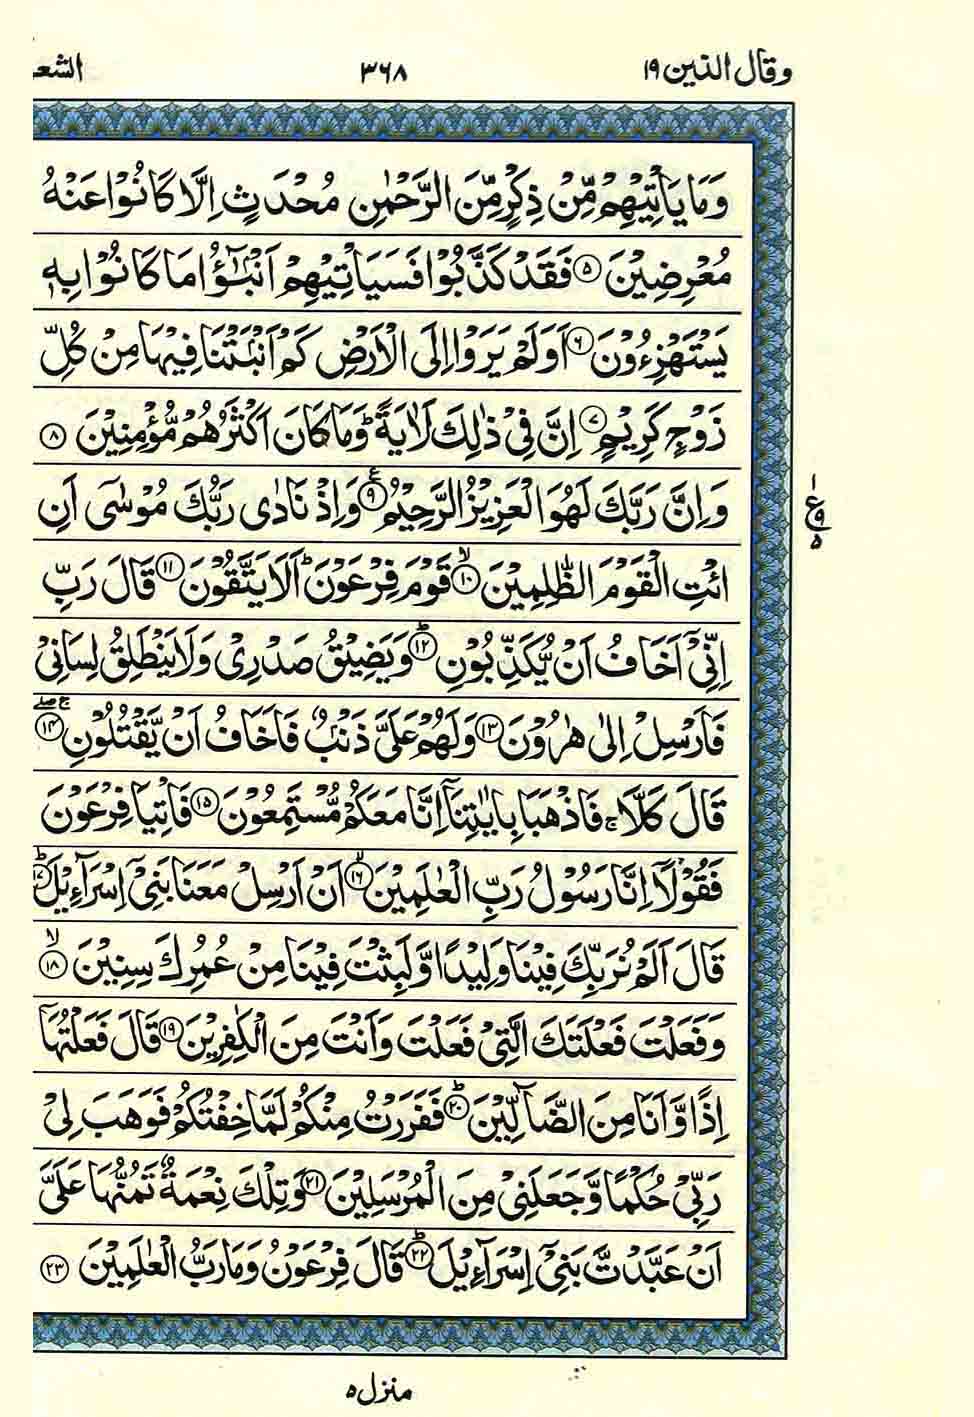 وقال الذين ١٩
٣٦٨
الشع
وَمَا يَاْتِيْهِمْ مِّنْ ذِكْرٍ مِّنَ الرَّحْمٰنِ مُحْدَثٍ اِلَّا كَانُوْا عَنْهُ
مُعْرِضِيْنَ ۝٥ فَقَدْ كَذَّبُوْا فَسَيَاْتِيْهِمْ اَنْۢبٰٓؤُا مَا كَانُوْا بِهٖ
يَسْتَهْزِءُوْنَ ۝٦ اَوَلَمْ يَرَوْا اِلَى الْاَرْضِ كَمْ اَنْۢبَتْنَا فِيْهَا مِنْ كُلِّ
زَوْجٍ كَرِيْمٍ ۝٧ اِنَّ فِيْ ذٰلِكَ لَاٰيَةً ؕ وَمَا كَانَ اَكْثَرُهُمْ مُّؤْمِنِيْنَ ۝٨
وَاِنَّ رَبَّكَ لَهُوَ الْعَزِيْزُ الرَّحِيْمُ ۝٩ع وَاِذْ نَادٰى رَبُّكَ مُوْسٰٓى اَنِ
ائْتِ الْقَوْمَ الظّٰلِمِيْنَ ۝١٠ۙ قَوْمَ فِرْعَوْنَ ؕ اَلَا يَتَّقُوْنَ ۝١١ قَالَ رَبِّ
اِنِّيْٓ اَخَافُ اَنْ يُّكَذِّبُوْنِ ۝١٢ؕ وَيَضِيْقُ صَدْرِيْ وَلَا يَنْطَلِقُ لِسَانِيْ
فَاَرْسِلْ اِلٰى هٰرُوْنَ ۝١٣ وَلَهُمْ عَلَيَّ ذَنْۢبٌ فَاَخَافُ اَنْ يَّقْتُلُوْنِ ۝١٤ۚ
قَالَ كَلَّا ۚ فَاذْهَبَا بِاٰيٰتِنَآ اِنَّا مَعَكُمْ مُّسْتَمِعُوْنَ ۝١٥ فَاْتِيَا فِرْعَوْنَ
فَقُوْلَآ اِنَّا رَسُوْلُ رَبِّ الْعٰلَمِيْنَ ۝١٦ۙ اَنْ اَرْسِلْ مَعَنَا بَنِيْٓ اِسْرَآءِيْلَ ۝١٧ؕ
قَالَ اَلَمْ نُرَبِّكَ فِيْنَا وَلِيْدًا وَّلَبِثْتَ فِيْنَا مِنْ عُمُرِكَ سِنِيْنَ ۝١٨ۙ
وَفَعَلْتَ فَعْلَتَكَ الَّتِيْ فَعَلْتَ وَاَنْتَ مِنَ الْكٰفِرِيْنَ ۝١٩ قَالَ فَعَلْتُهَآ
اِذًا وَّاَنَا مِنَ الضَّآلِّيْنَ ۝٢٠ؕ فَفَرَرْتُ مِنْكُمْ لَمَّا خِفْتُكُمْ فَوَهَبَ لِيْ
رَبِّيْ حُكْمًا وَّجَعَلَنِيْ مِنَ الْمُرْسَلِيْنَ ۝٢١ وَتِلْكَ نِعْمَةٌ تَمُنُّهَا عَلَيَّ
اَنْ عَبَّدْتَّ بَنِيْٓ اِسْرَآءِيْلَ ۝٢٢ؕ قَالَ فِرْعَوْنُ وَمَا رَبُّ الْعٰلَمِيْنَ ۝٢٣
١
ع ٩
٥
منزل ٥